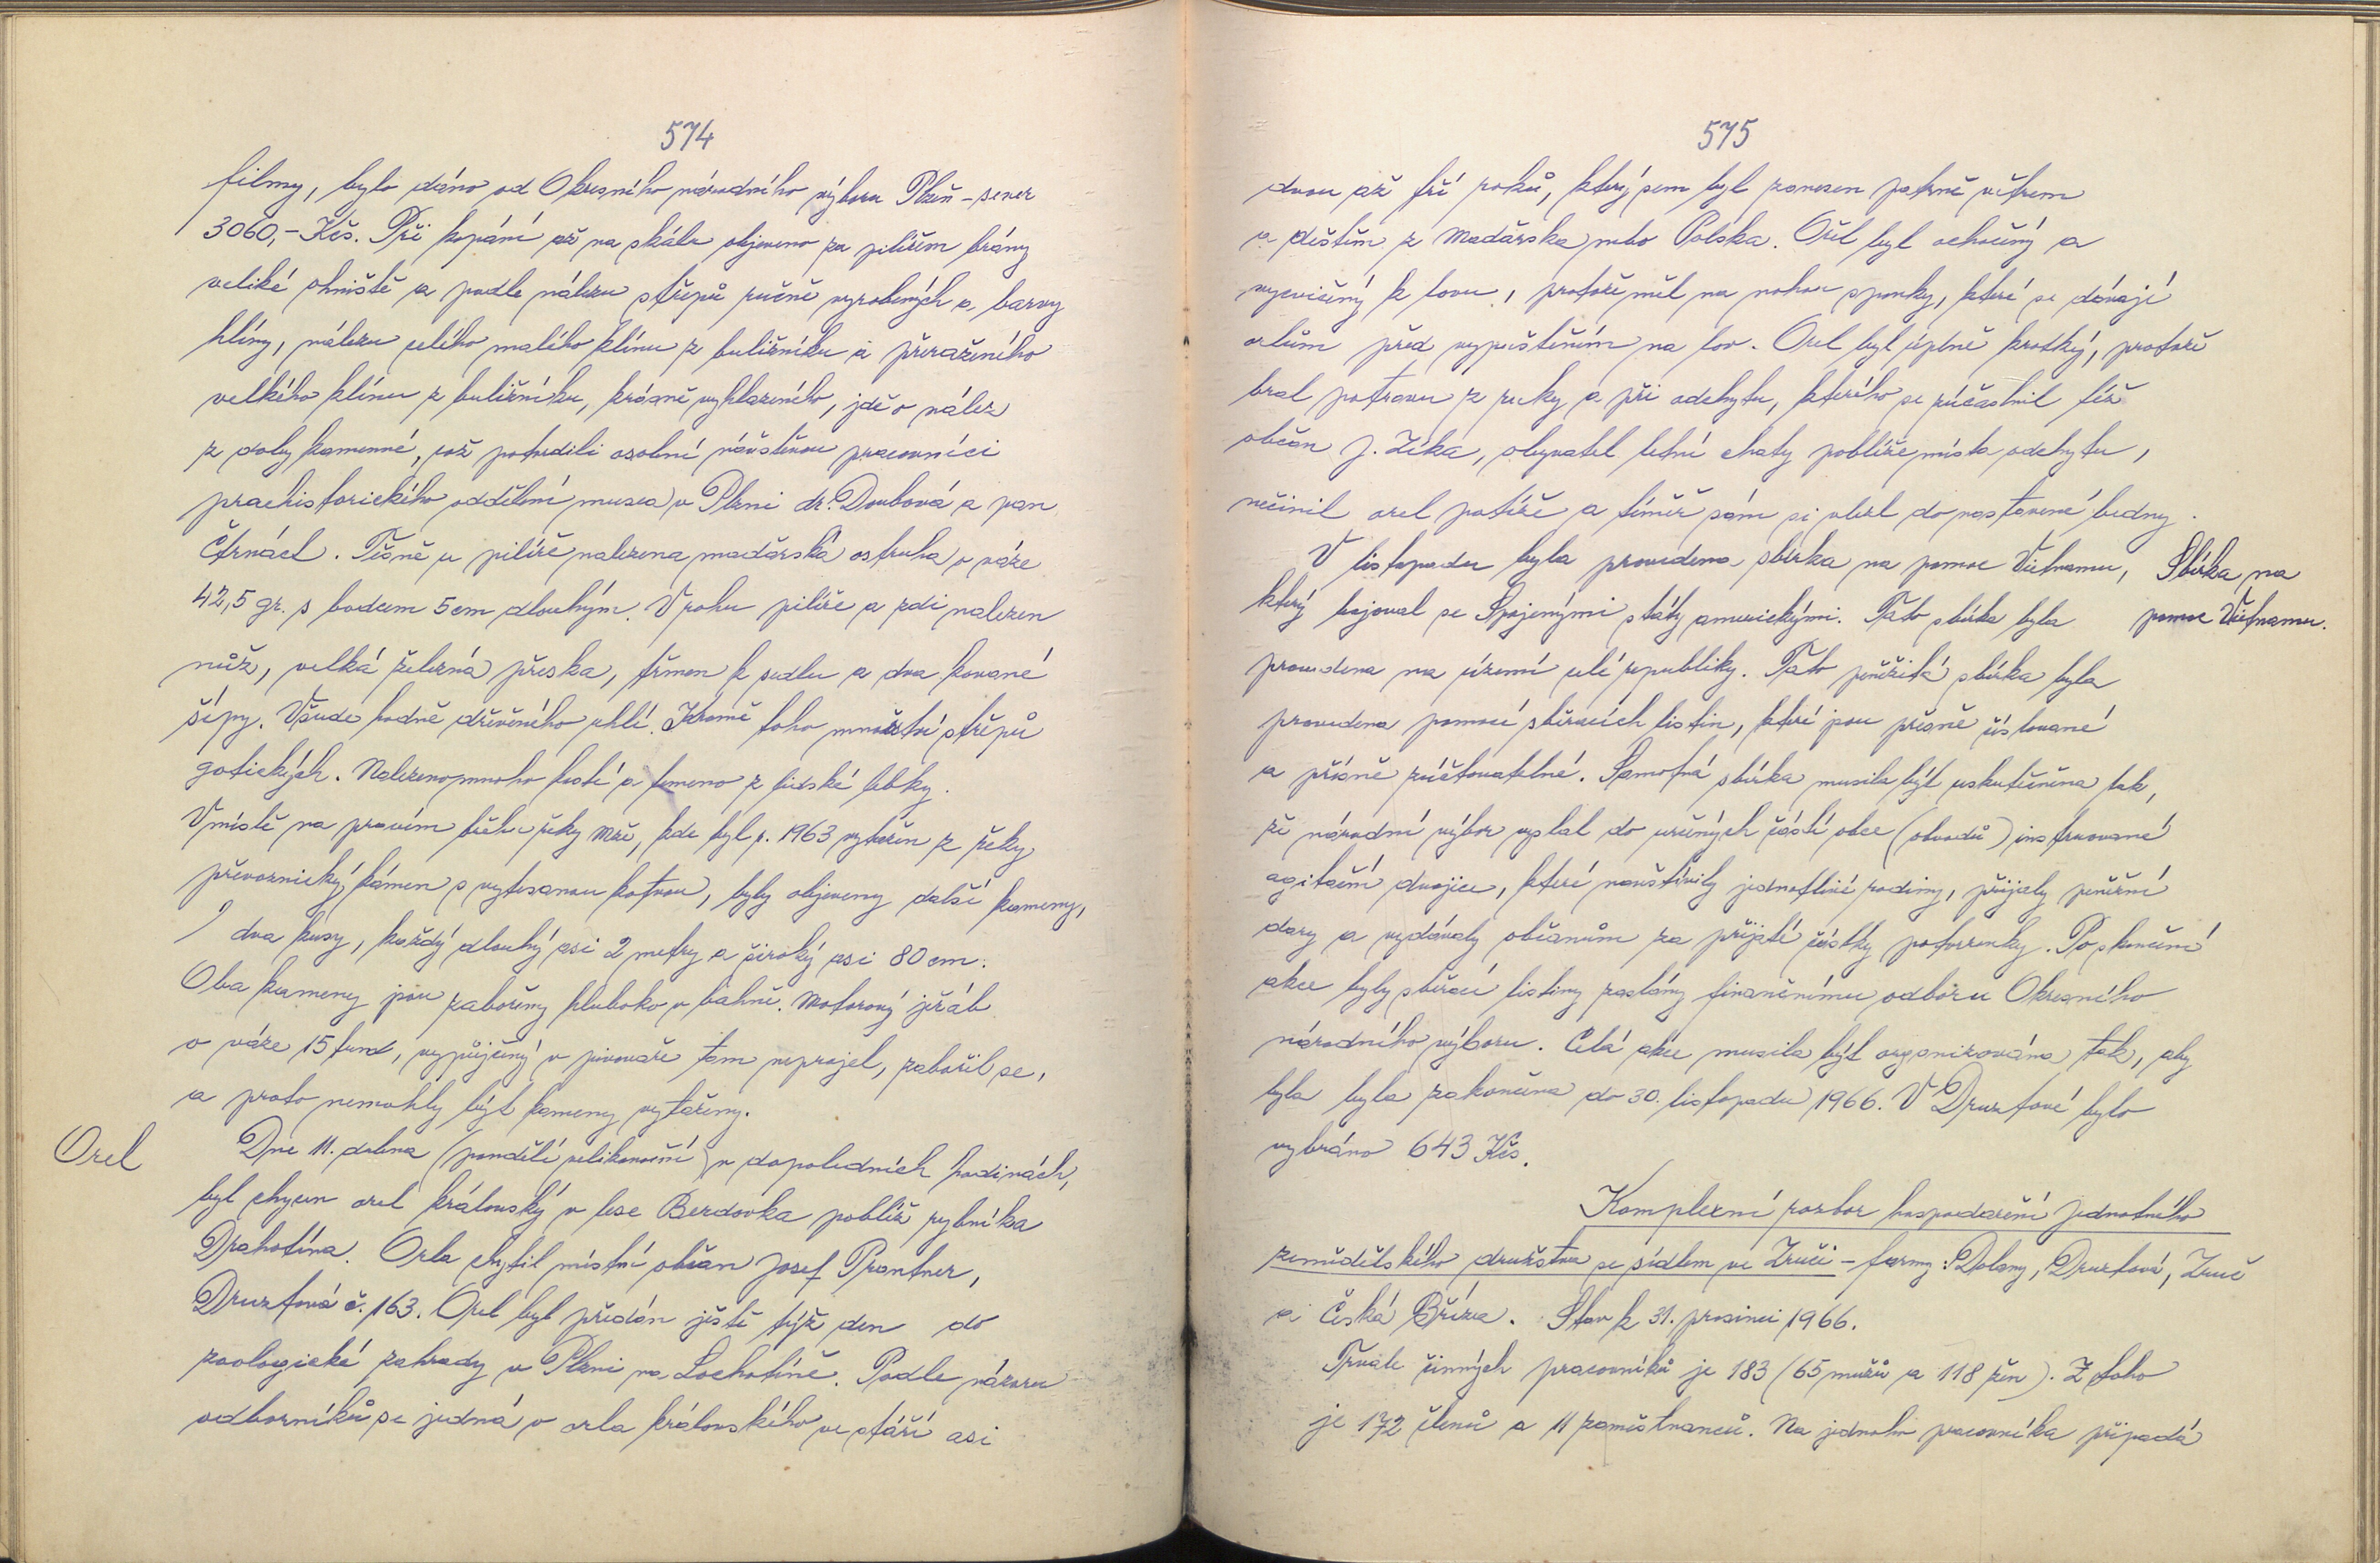 574
filmy, bylo dáno od Okresního národního výboru Plzeň-sever
3060,- Kčs. Při kopání až na skálu objeveno za pilířem brány
veliké ohniště a podle nálezu střepů ručně vyrobených a barvy
hlíny, nálezu celého malého klínu z buližníku a přeraženého
velkého klínu z buližníku, krásně vyhlazeného, jde o nález
z doby kamenné, což potvrdili osobní návštěvou pracovníci
praehistorického oddělení musea v Plzni dr. Doubová a pan
Čtrnáct. Těsně u pilíře nalezena maďarská ostruha o váze
42,5 gr. s bodcem 5 cm dlouhým. V rohu pilíře a zdi nalezen
nůž, velká železná přeska, třmen k sedlu a dva kované
šípy. Všude hodně dřevěného uhlí. Kromě toho množství střepů
gotických. Nalezeno mnoho kostí a temeno z lidské lebky.
V místě na pravém břehu řeky Mže, kde byl r. 1963 vytažen z řeky
převoznický kámen s vytesanou kotvou, byly objeveny další kameny,
dva kusy, každý dlouhý asi 2 metry a široký asi 80 cm.
Oba kameny jsou zabořeny hluboko v bahně. Motorový jeřáb
o váze 15 tun, vypůjčený v pivovaře tam neprojel, zabořil se,
a proto nemohly být kameny vytaženy.
Orel
Dne 11. dubna (pondělí velikonoční) v dopoledních hodinách,
byl chycen orel královský v lese Berdovka poblíž rybníka
Drahotína. Orla chytil místní občan Josef Prantner,
Druztová č. 163. Orel byl předán ještě týž den do
zoologické zahrady v Plzni na Lochotíně. Podle názoru
odborníků se jedná o orla královského ve stáří asi
575
dvou až tří roků, který sem byl zanesen patrně větrem
a deštěm z Maďarska nebo Polska. Orel byl ochočený a
vycvičený k lovu, protože měl na nohou sponky, které se dávají
orlům před vypuštěním na lov. Orel byl úplně krotký, protože
bral potravu z ruky a při odchytu, kterého se zúčastnil též
občan J. Zíka, obyvatel letní chaty poblíže místa odchytu,
nečinil orel potíže a téměř sám si vlezl do nastavené bedny.
V listopadu byla provedena sbírka na pomoc Vietnamu,
Sbírka na
pomoc Vietnamu.
který bojoval se Spojenými státy americkými. Tato sbírka byla
provedena na území celé republiky. Tato peněžitá sbírka byla
provedena pomocí sběracích listin, které jsou přesně číslované
a přísně zúčtovatelné. Samotná sbírka musila být uskutečněna tak,
že národní výbor vyslal do určených částí obce (obvodů) instruované
agitační dvojice, které navštívily jednotlivé rodiny, přijaly peněžní
dary a vydávaly občanům za přijaté částky potvrzenky. Po skončení
akce byly sběrací listiny zaslány finančnímu odboru Okresního
národního výboru. Celá akce musila být organizována tak, aby
byla byla zakončena do 30. listopadu 1966. V Druztové bylo
vybráno 643 Kčs.
Komplexní rozbor hospodaření Jednotného
zemědělského družstva se sídlem ve Zruči - farmy: Dolany, Druztová, Zruč
a Česká Bříza. Stav k 31. prosinci 1966.
Trvale činných pracovníků je 183 (65 mužů a 118 žen). Z toho
je 172 členů a 11 zaměstnanců. Na jednoho pracovníka připadá